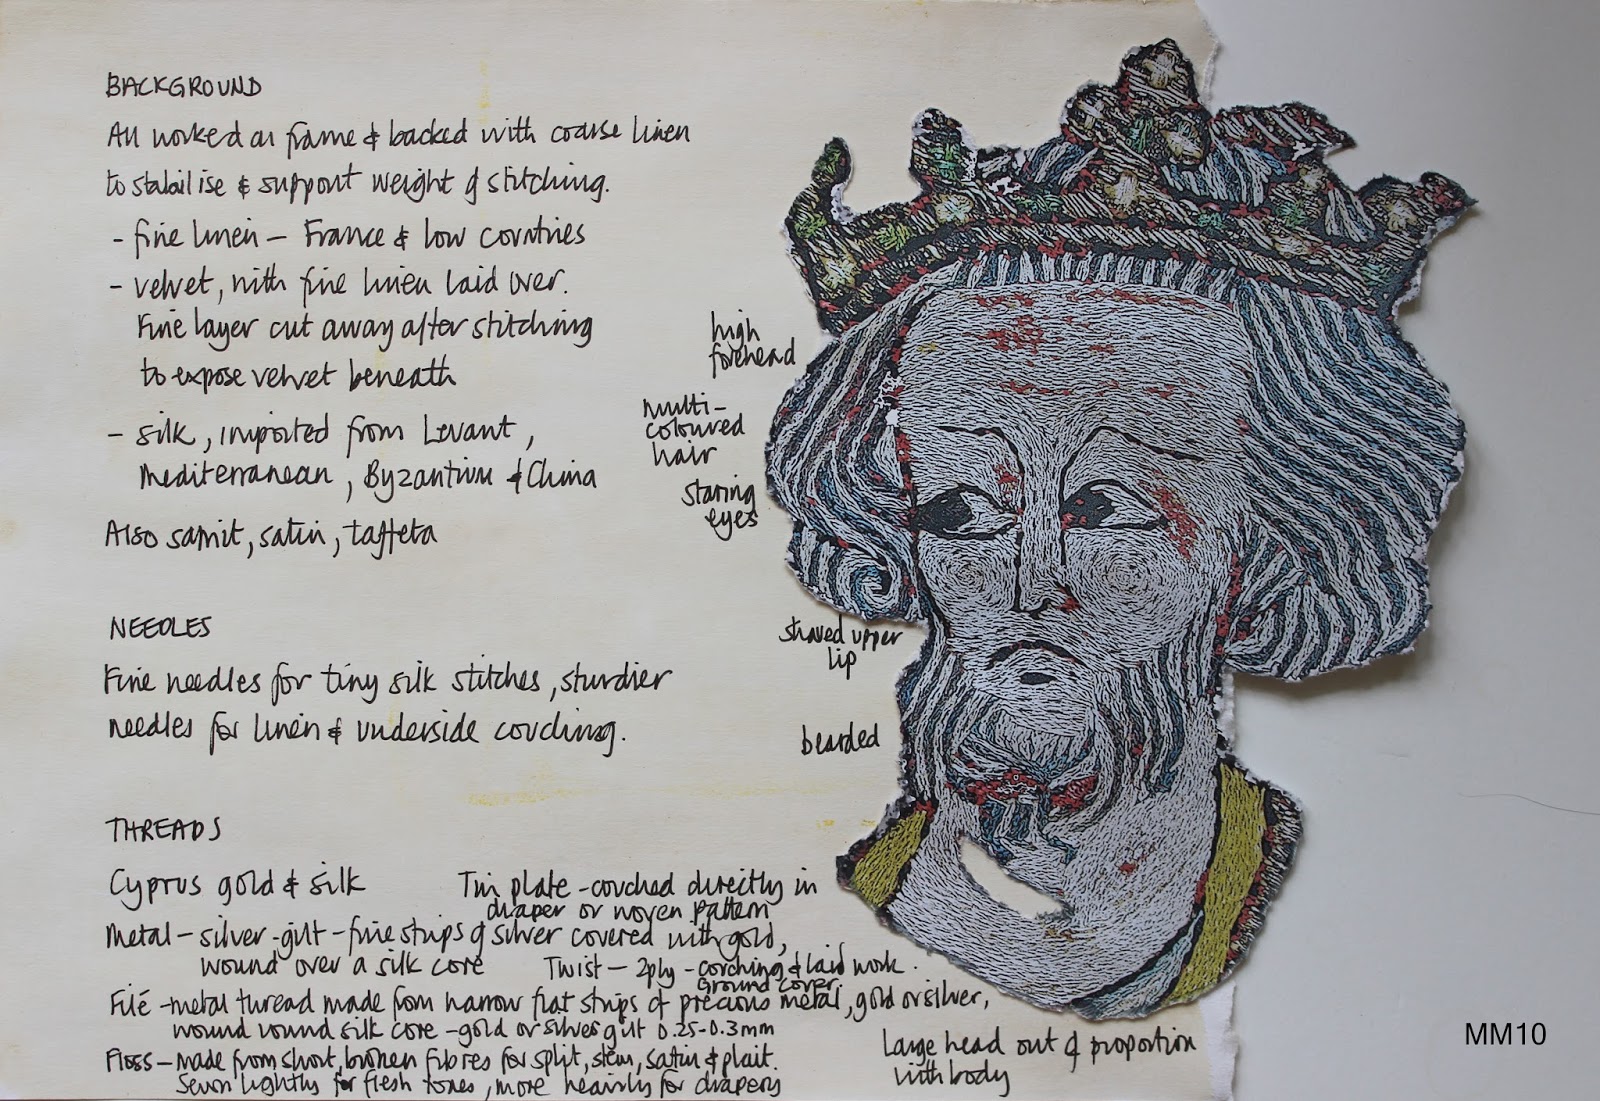 BACKGROUND
All worked on frame & backed with coarse linen
to stabilise & support weight of stitching.
- fine linen – France & low countries
- velvet, with fine linen laid over.
Fine layer cut away after stitching
to expose velvet beneath
- silk, imported from Levant,
Mediterranean, Byzantium & China
Also samit, satin, taffeta
high
forehead
multi-
coloured
hair
staring
eyes
shaved upper
lip
bearded
NEEDLES
Fine needles for tiny silk stitches, sturdier
needles for linen & underside couching.
THREADS
Cyprus gold & silk
Tin plate - couched directly in
diaper or woven pattern
Metal – silver-gilt – fine strips of silver covered with gold,
wound over a silk core
Twist – 2ply – couching & laid work.
Ground cover.
Filé – metal thread made from narrow flat strips of precious metal, gold or silver,
wound round silk core – gold or silver gilt 0.25-0.3mm
Floss – made from short, broken fibres for split, stem, satin & plait.
Sewn lightly for flesh tones, more heavily for drapery
Large head out of proportion
with body
MM10